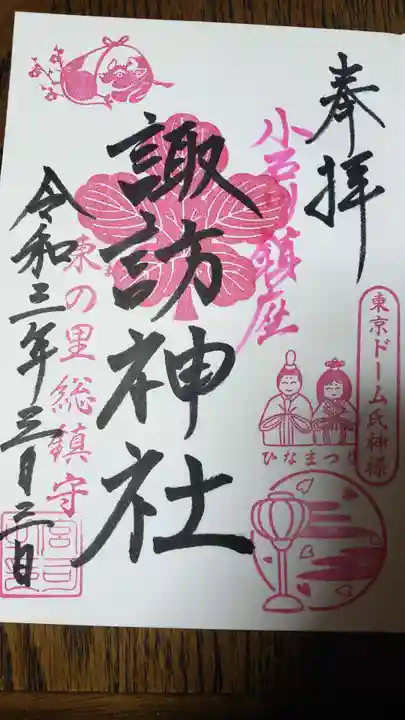 奉拝
小石川鎮座
東京ドーム氏神様
ひなまつり
諏訪神社
東の里総鎮守
令和三年三月三日